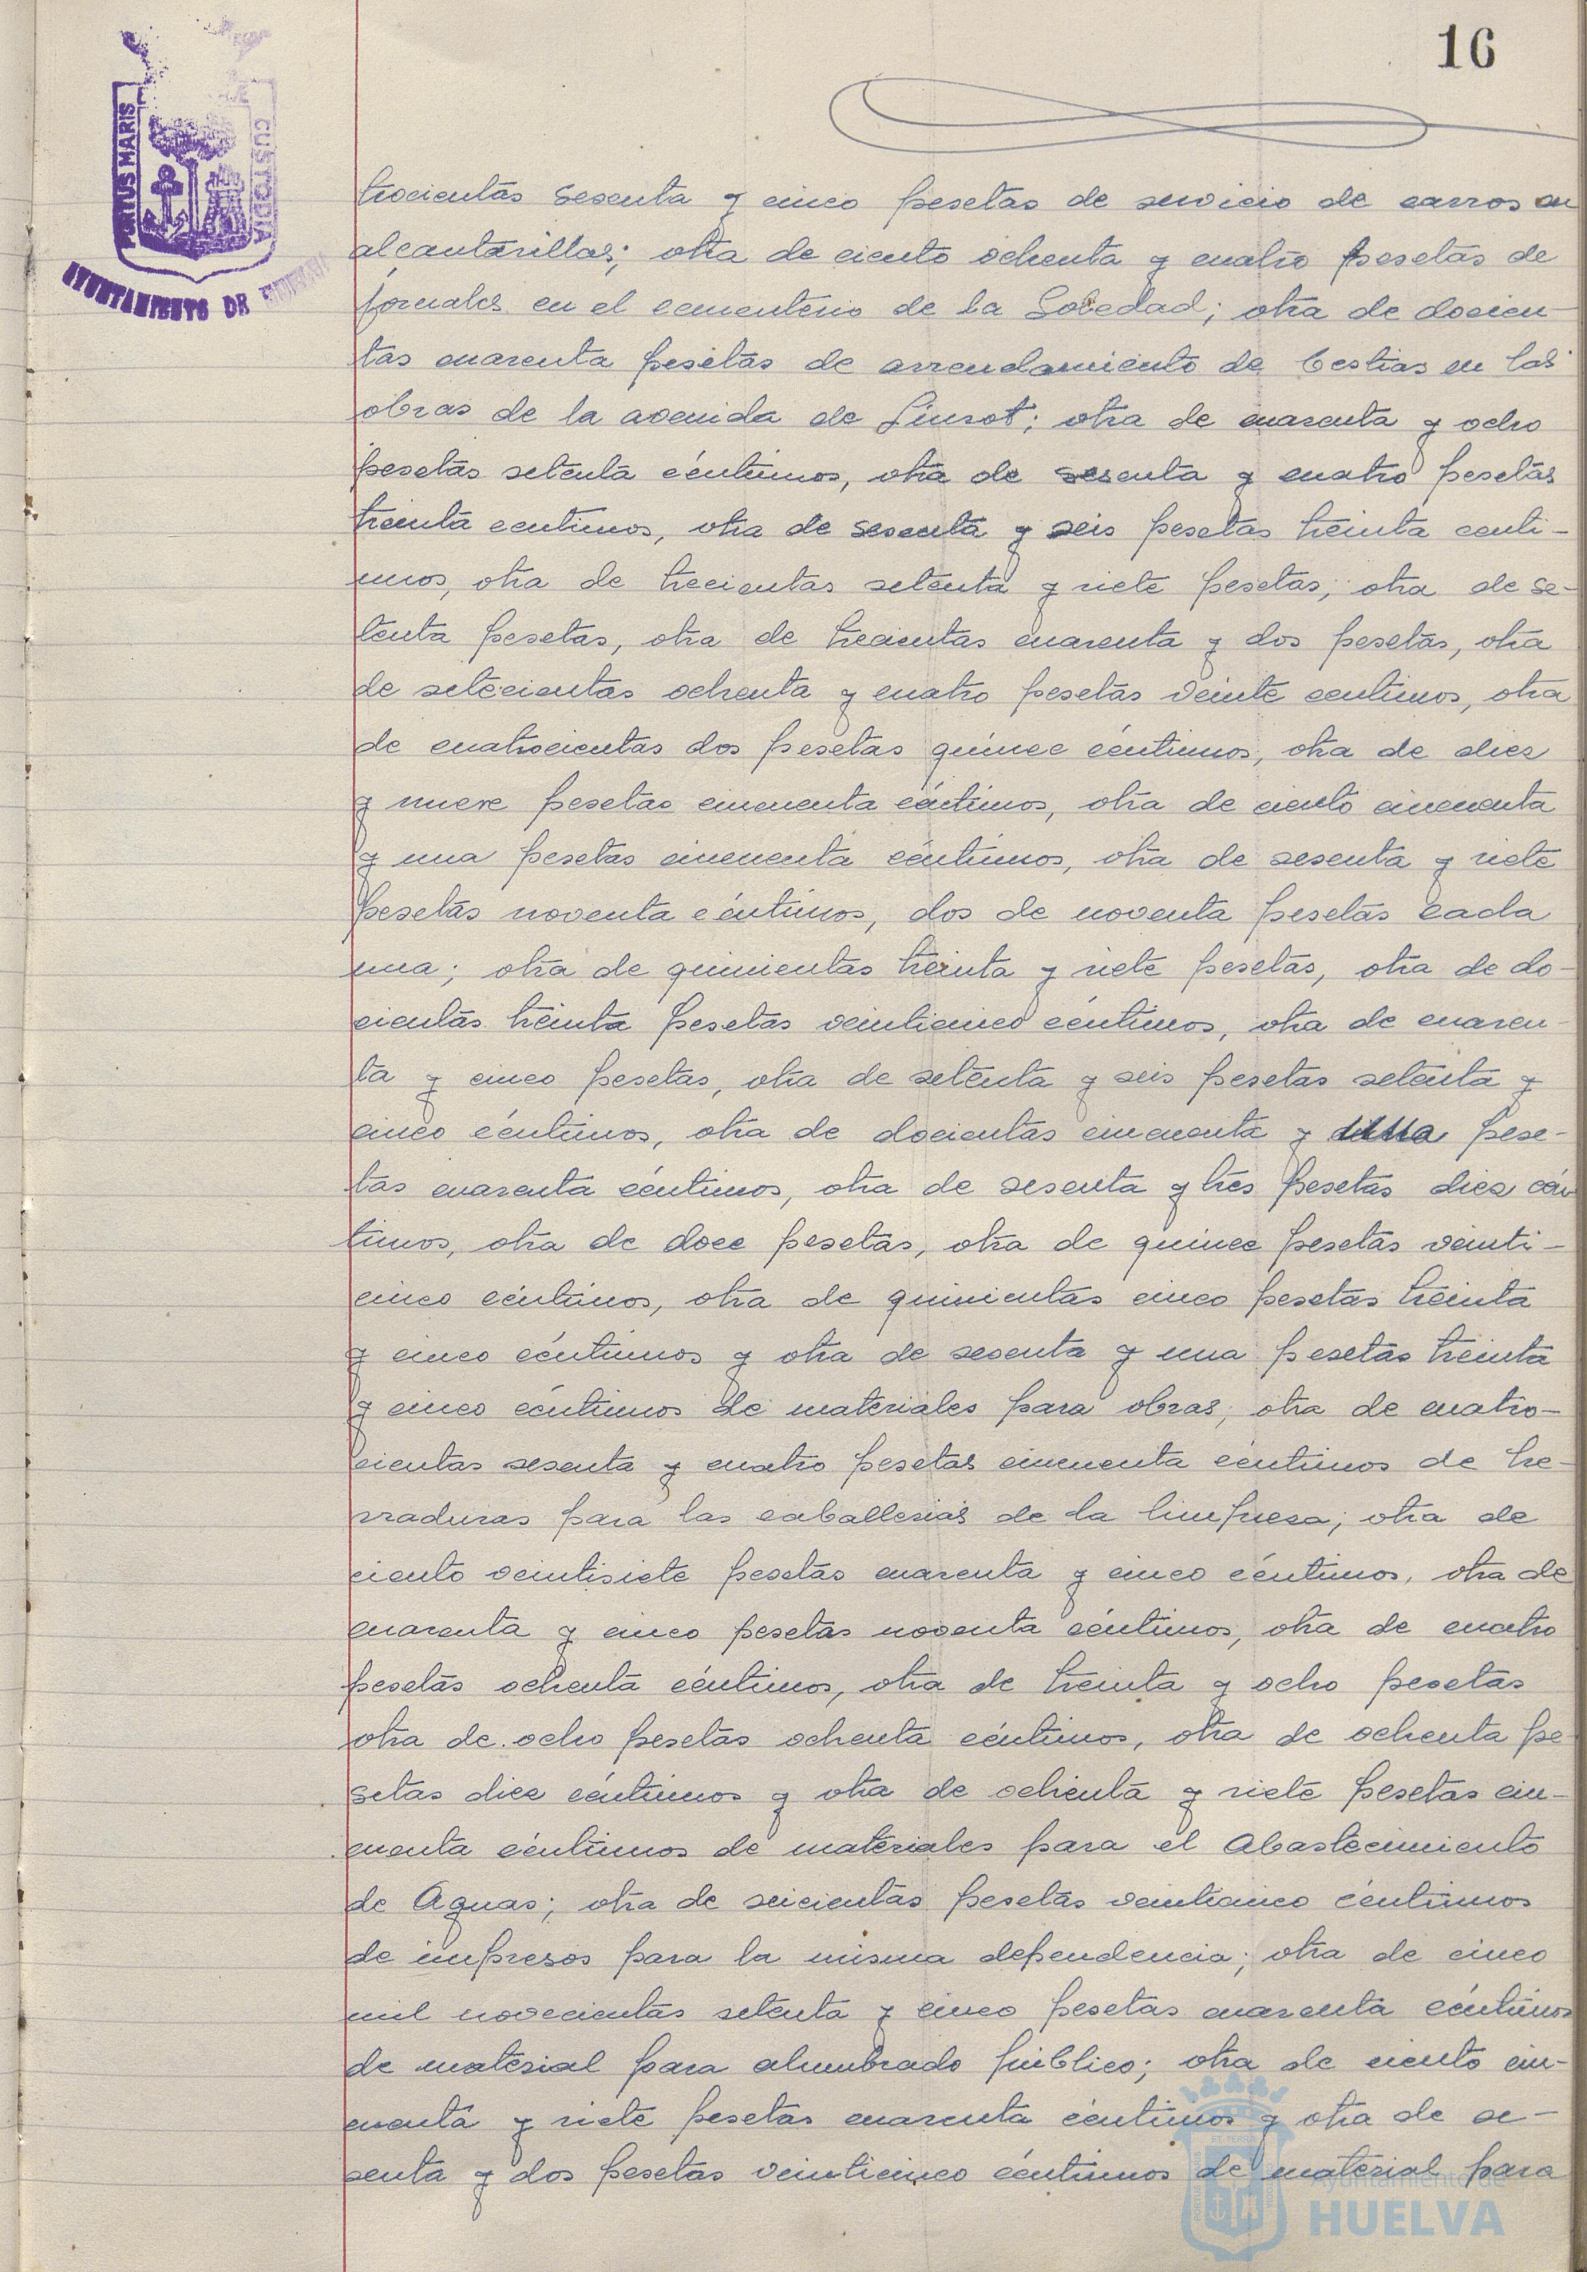 16
PORTUS MARIS
CUSTODIA
AYUNTAMIENTO DE HUELVA
trocientas sesenta y cinco pesetas de servicio de carros en
alcantarillas; otra de ciento ochenta y cuatro pesetas de
jornales en el cementerio de la Soledad; otra de docien-
tas cuarenta pesetas de arrendamiento de bestias en las
obras de la avenida de Sinrot; otra de cuarenta y ocho
pesetas setenta céntimos, otra de sesenta y cuatro pesetas
treinta centimos, otra de sesenta y seis pesetas treinta centi-
mos, otra de trecientas setenta y siete pesetas; otra de se-
tenta pesetas, otra de trecientas cuarenta y dos pesetas, otra
de setecientas ochenta y cuatro pesetas veinte centimos, otra
de cuatrocientas dos pesetas quince céntimos, otra de diez
y nueve pesetas cincuenta céntimos, otra de ciento cincuenta
y una pesetas cincuenta céntimos, otra de sesenta y siete
pesetas noventa céntimos, dos de noventa pesetas cada
una; otra de quinientas treinta y siete pesetas, otra de do-
cientas treinta pesetas veinticinco céntimos, otra de cuaren-
ta y cinco pesetas, otra de setenta y seis pesetas setenta y
cinco céntimos, otra de docientas cincuenta y una pese-
tas cuarenta céntimos, otra de sesenta y tres pesetas diez cén
timos, otra de doce pesetas, otra de quince pesetas veinti-
cinco céntimos, otra de quinientas cinco pesetas treinta
y cinco céntimos y otra de sesenta y una pesetas treinta
y cinco céntimos de materiales para obras; otra de cuatro-
cientas sesenta y cuatro pesetas cincuenta céntimos de he-
rraduras para las caballerias de la limpieza; otra de
ciento veintisiete pesetas cuarenta y cinco céntimos, otra de
cuarenta y cinco pesetas noventa céntimos, otra de cuatro
pesetas ochenta céntimos, otra de treinta y ocho pesetas
otra de ocho pesetas ochenta céntimos, otra de ochenta pe-
setas diez céntimos y otra de ochenta y siete pesetas cin-
cuenta céntimos de materiales para el Abastecimiento
de Aguas; otra de seicientas pesetas veinticinco céntimos
de impresos para la misma dependencia; otra de cinco
mil novecientas setenta y cinco pesetas cuarenta céntimos
de material para alumbrado público; otra de ciento cin-
cuenta y siete pesetas cuarenta céntimos y otra de se-
senta y dos pesetas veinticinco céntimos de material para
Ayuntamiento de
HUELVA